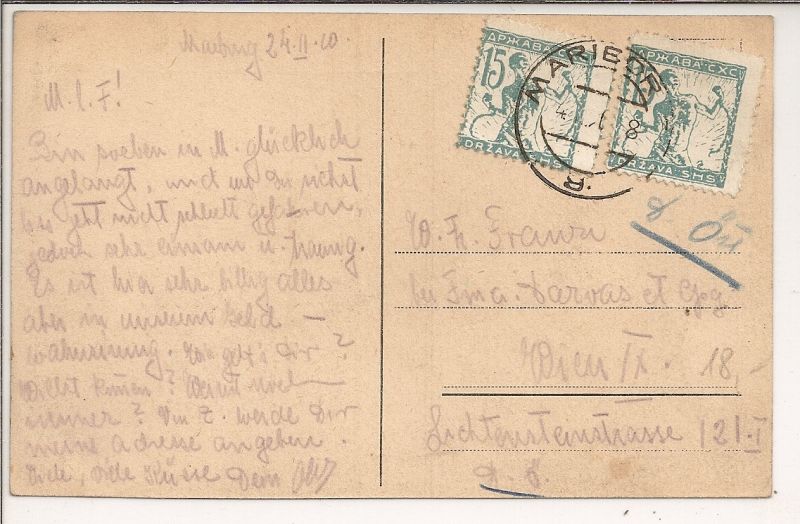 Marburg 24.II.20
M. l. F!
Bin soeben in M. glücklich
angelangt, und wie Du siehst
bis jetzt nicht schlecht gefahren,
jedoch sehr einsam u. traurig.
Es ist hier sehr billig alles
aber in unserem Geld –
wahnsinnig. Wie geht's Dir?
immer? Von Z. werde Dir
meine Adresse angeben.
Viele, viele Küsse Dein
15
ДРЖАВА СХС
DRŽAVA SHS
ДРЖАВА СХС
DRŽAVA SHS
MARIBOR
W. h.
bei Fma. Darvas et
Wien IX. 18,-
Lichtensteinstrasse 121.I
D. Ö.